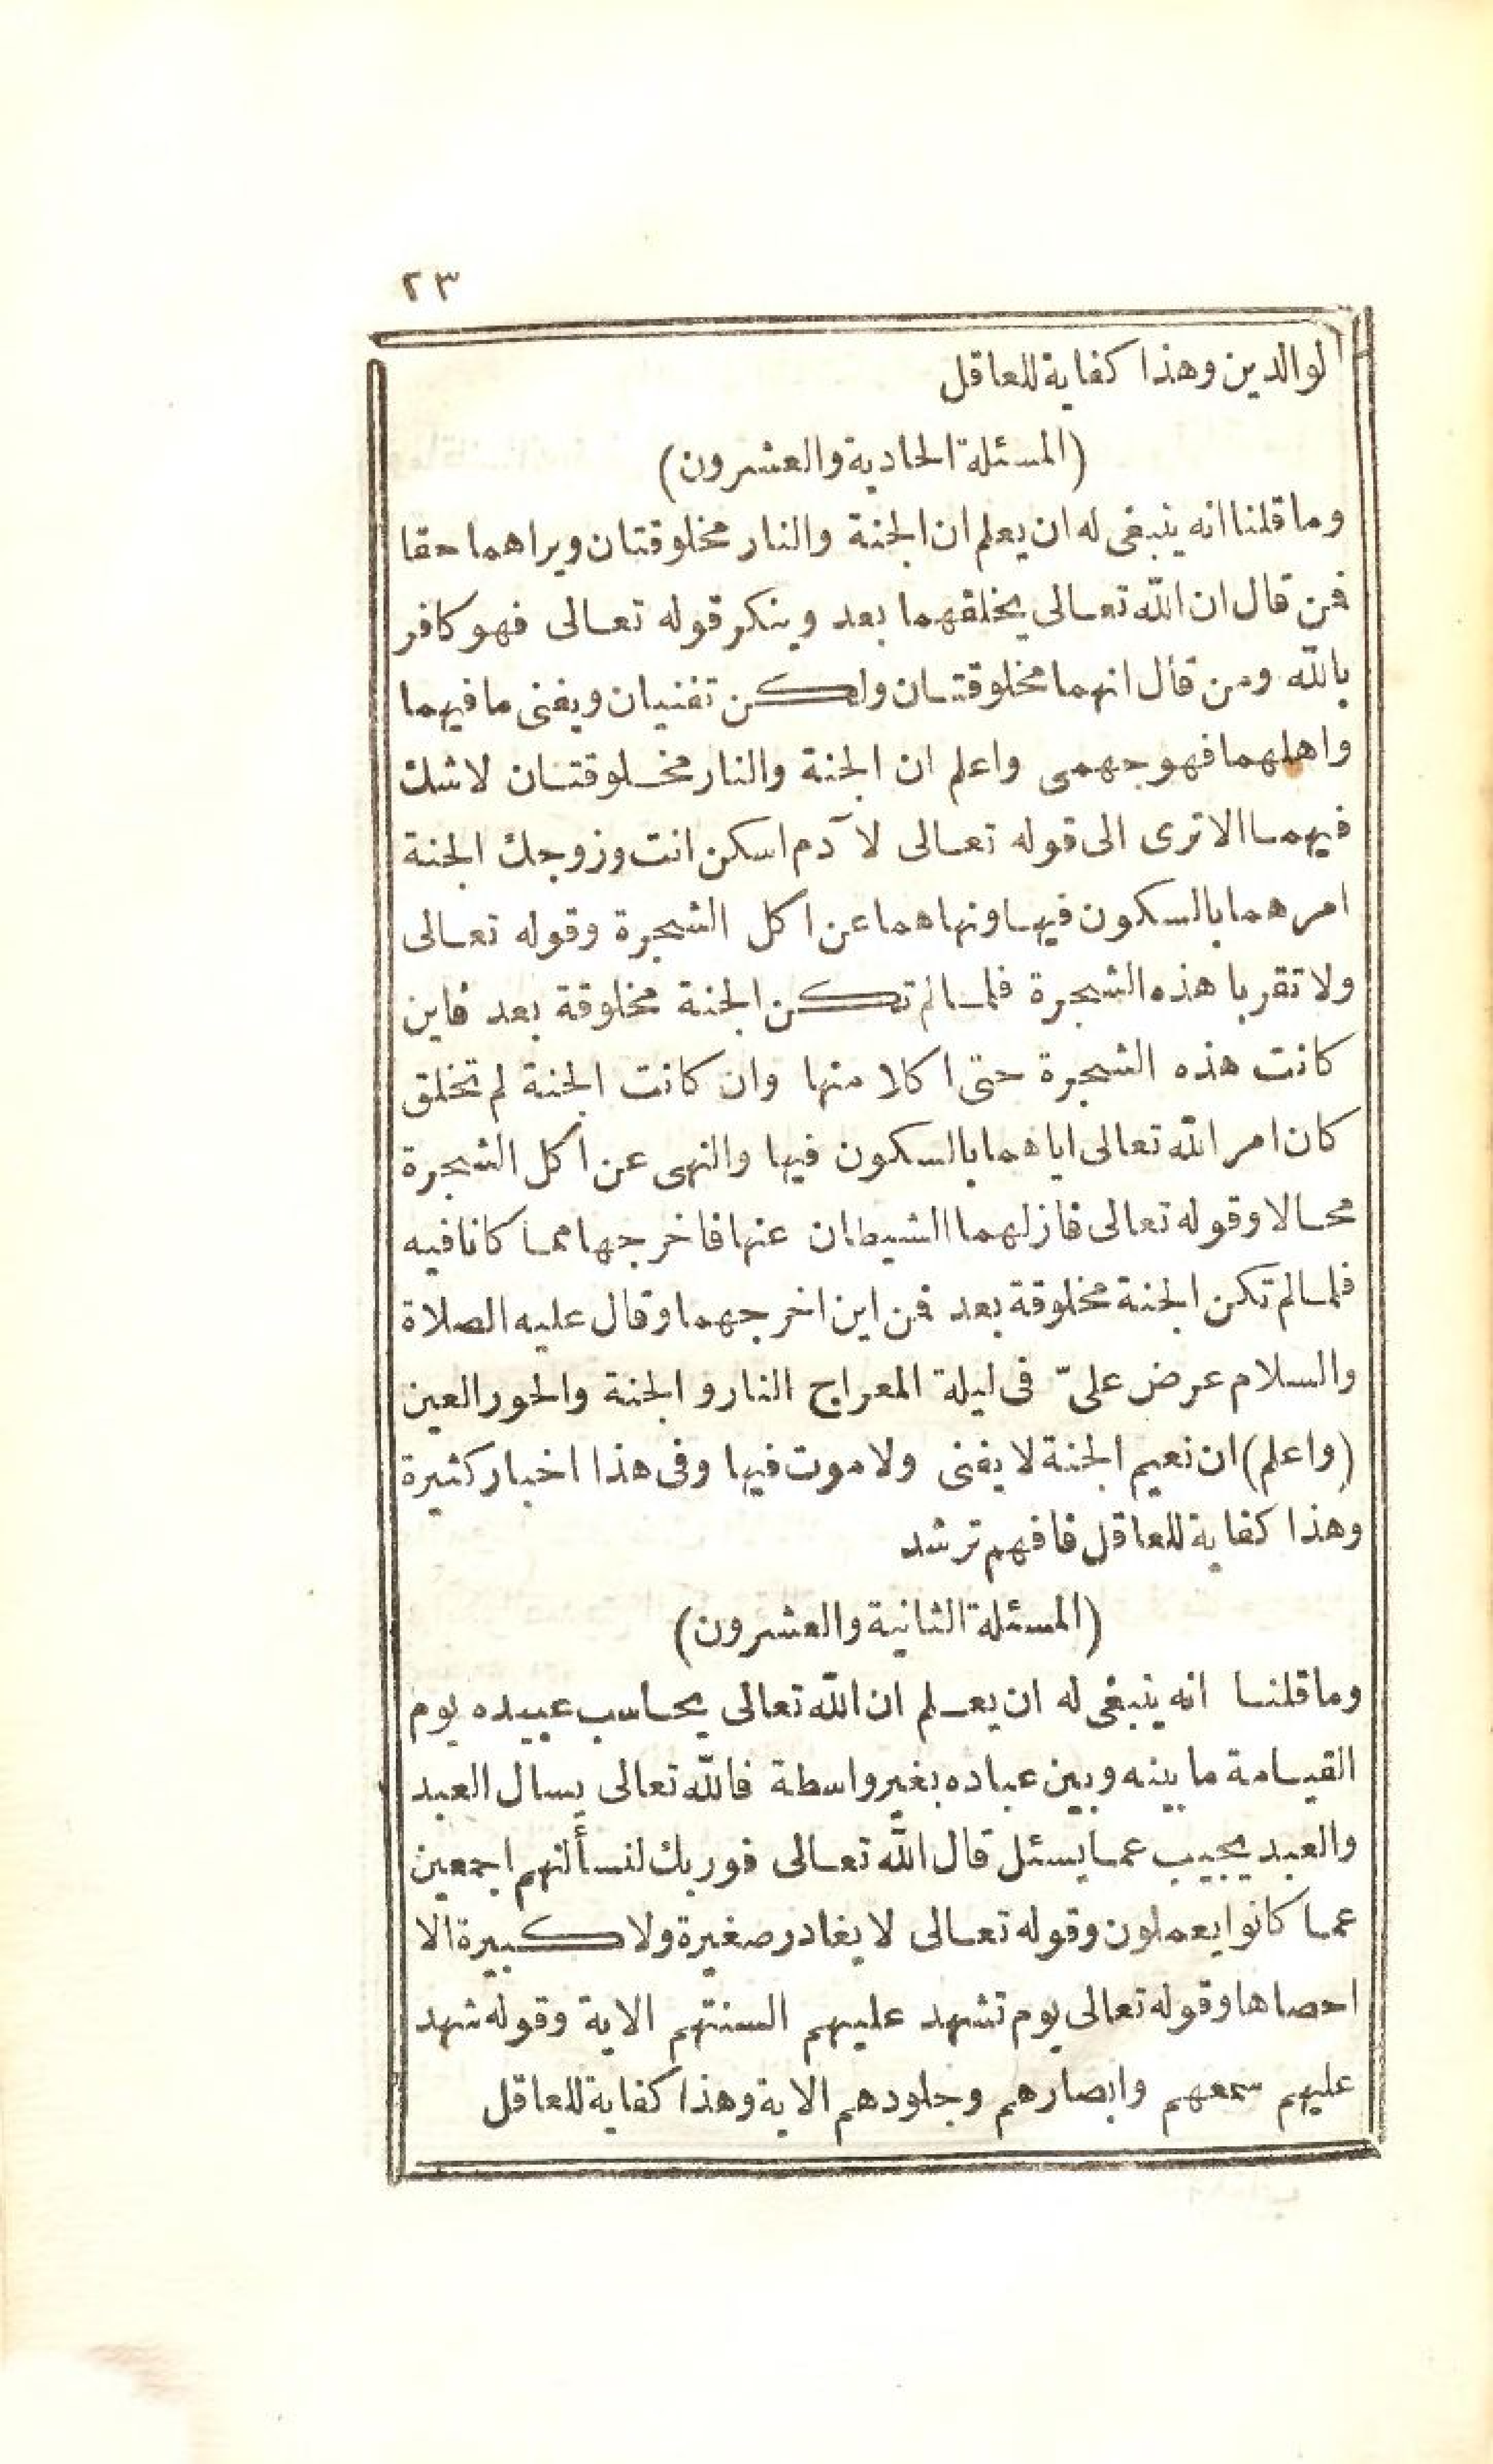 ٢٣
لوالدين وهذا كفاية للعاقل
(المسئلة الحادية والعشرون)
وما قلنا انه ينبغى له ان يعلم ان الجنة والنار مخلوقتان ويراهما حقا
فمن قال ان الله تعالى يخلقهما بعد وينكر قوله تعالى فهو كافر
بالله ومن قال انهما مخلوقتان ولكن تفنيان ويفنى ما فيهما
واهلهما فهو جهمى واعلم ان الجنة والنار مخلوقتان لا شك
فيهما الا ترى الى قوله تعالى لآدم اسكن انت وزوجك الجنة
امرهما بالسكون فيها ونهاهما عن اكل الشجرة وقوله تعالى
ولا تقربا هذه الشجرة فلما لم تكن الجنة مخلوقة بعد فاين
كانت هذه الشجرة حتى اكلا منها وان كانت الجنة لم تخلق
كان امر الله تعالى اياهما بالسكون فيها والنهى عن اكل الشجرة
محالا وقوله تعالى فازلهما الشيطان عنها فاخرجهما مما كانا فيه
فلما لم تكن الجنة مخلوقة بعد فمن اين اخرجهما وقال عليه الصلاة
والسلام عرض علىّ فى ليلة المعراج النار و الجنة والحور العين
(واعلم) ان نعيم الجنة لا يفنى ولا موت فيها وفى هذا اخبار كثيرة
وهذا كفاية للعاقل فافهم ترشد
(المسئلة الثانية والعشرون)
وما قلنا انه ينبغى له ان يعلم ان الله تعالى يحاسب عبيده يوم
القيامة ما بينه وبين عباده بغير واسطة فالله تعالى يسال العبد
والعبد يجيب عما يسئل قال الله تعالى فوربك لنسألنهم اجمعين
عما كانوا يعملون وقوله تعالى لا يغادر صغيرة ولا كبيرة الا
احصاها وقوله تعالى يوم تشهد عليهم السنتهم الاية وقوله شهد
عليهم سمعهم وابصارهم وجلودهم الاية وهذا كفاية للعاقل